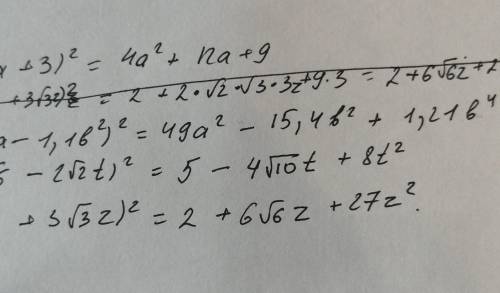 x + 3)² = 4a² + 12a + 9
+ 3√3z)² = 2 + 2·√2·√3·3z + 9·3 = 2 + 6√6z + 2
a - 1,1b²)² = 49a² - 15,4b² + 1,21b⁴
5 - 2√2t)² = 5 - 4√10t + 8t²
+ 3√3z)² = 2 + 6√6z + 27z².